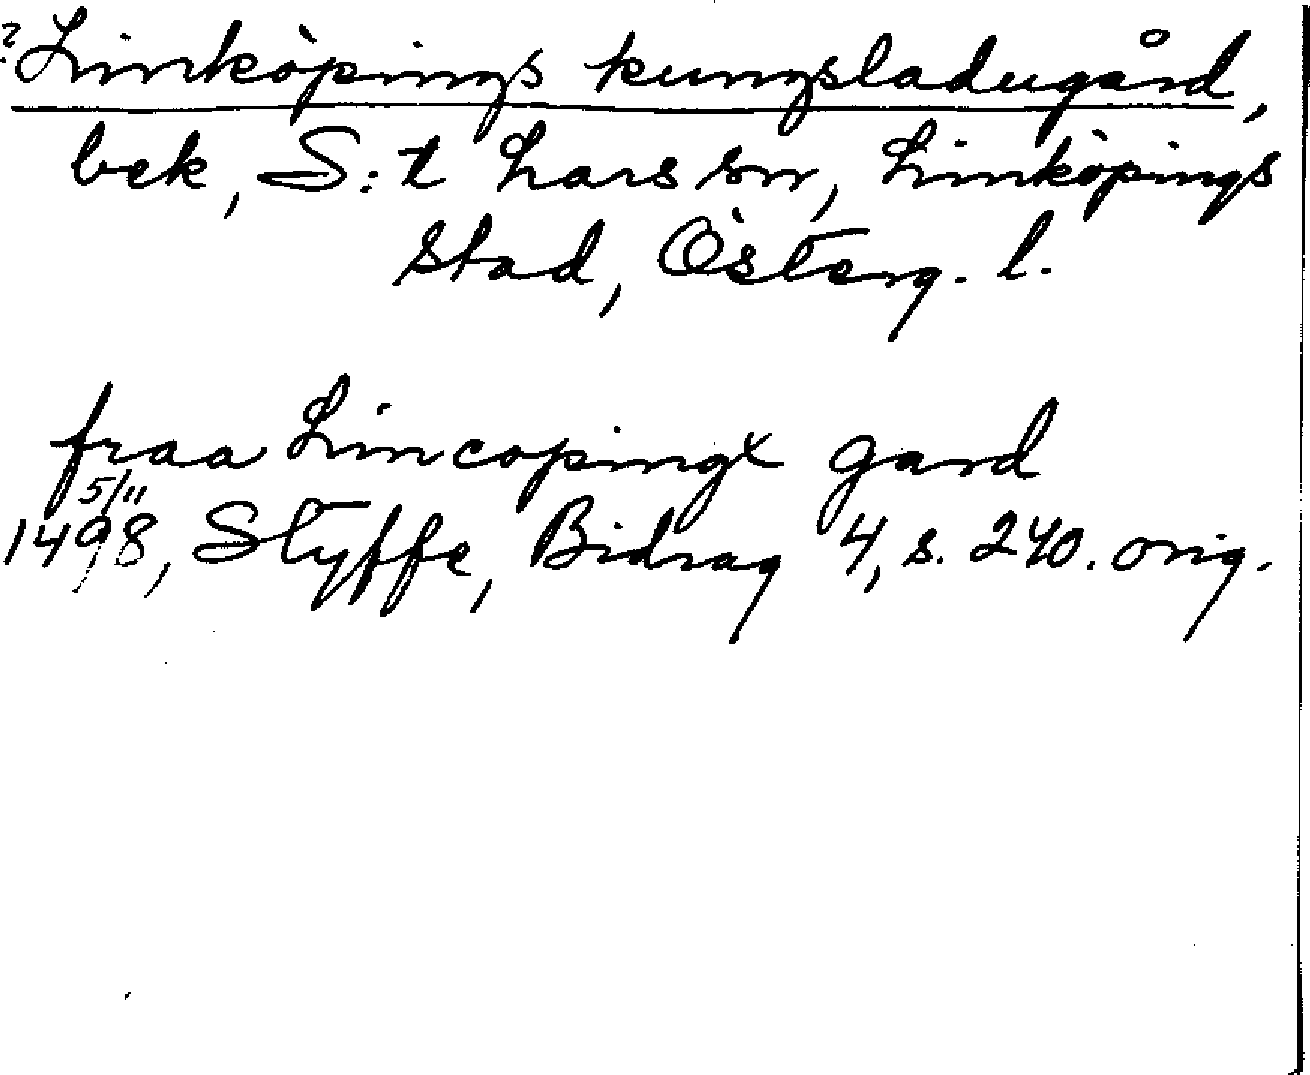 ? Linköpings kungsladugård,
bek, S:t Lars sn, Linköpings
stad, Österg. l.
fraa Lincopingx gard
5/11
1498, Styffe, Bidrag 4, s. 240. orig.